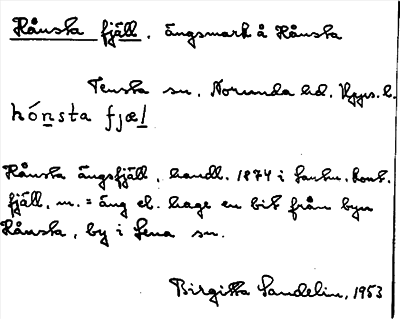 Hånsta fjäll, ängsmark å Hånsta
Tensta sn. Norunda hd. Upps. l.
hónsta fjæl
Hånsta ängsfjäll, handl. 1874 i Lantm. kont.
fjäll, n. = äng el. hage en bit från byn
Hånsta, by i Lena sn.
Birgitta Sandelin, 1953